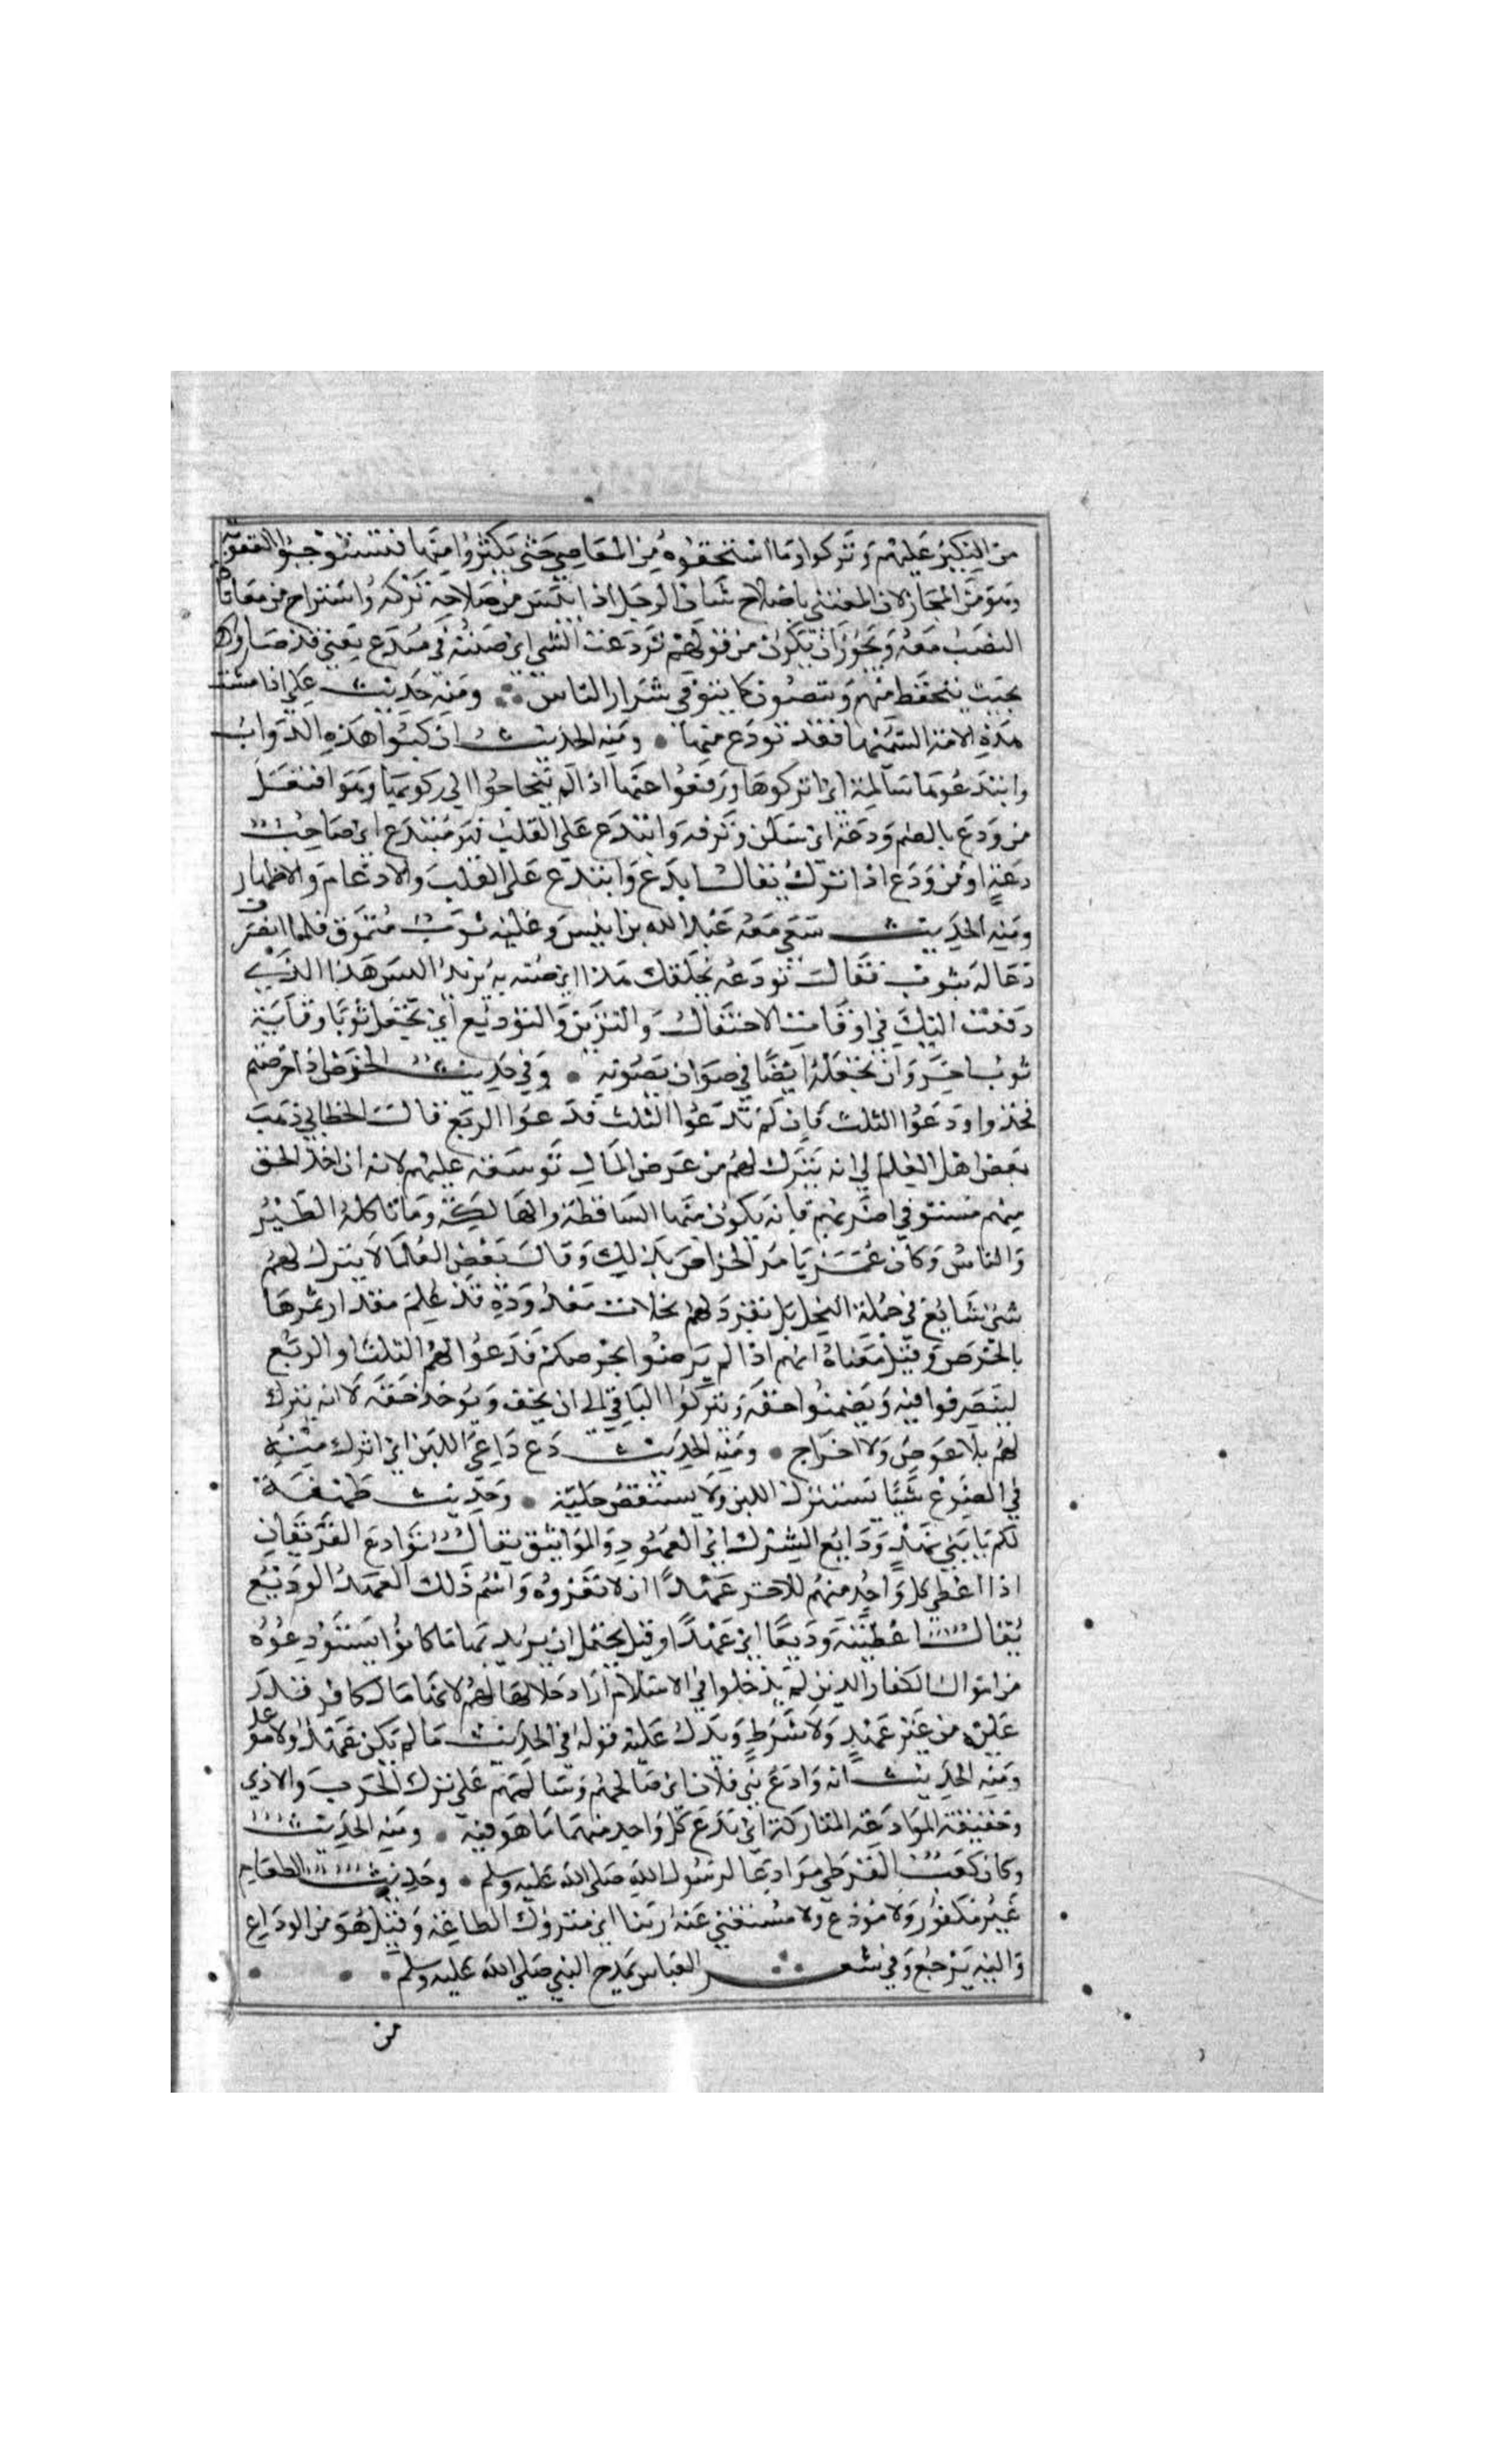 من النكير عليهم وتركوا وما استحقوه من المعاصي حتى يكثروا منها فيستوجبوا العقوبة
وهو من المجاز لان المعتني باصلاح شان الرجل اذا ايس من صلاحه تركه واستراح من معاناة
النصب معه ويجوز ان يكون من قولهم تودعت الشي اي صنته في ميدع يعني قد صاروا
بحيث يتحفظ منهم ويتصون كما يتوقى شرار الناس ومنه حديث علي اذا مشت
هذه الامة السميها فقد تودع منها ومنه الحديث اركبوا هذه الدواب
وابتدعوها سالمة اي اتركوها ورفهوا عنها اذا لم تحتاجوا الى ركوبها وهو افتعل
من ودع بالضم ودعة اي سكن وترفه وابتدع على القلب فهو متدع اي صاحب
دعة او من ودع اذا ترك يقال ايدع وابتدع على القلب والادغام والاظهار
ومنه الحديث سعى معه عبد الله بن انيس وعليه ثوب متمزق فلما انصرف
دعا له بثوب فقال تودعه بخلقك هذا اي صنه به يريد البس هذا الذي
دفعت اليك في اوقات الاحتفال والتزين والتوديع اي تجعل ثوبا وقاية
ثوب اخر وان تجعله ايضا في صوان يصونه وفي حديث الخرص اذا خرصتم
فخذوا ودعوا الثلث فان لم تدعوا الثلث فدعوا الربع قال الخطابي ذهب
بعض اهل العلم الى انه يترك لهم من عرض المال توسعة عليهم لانه ان اخذ الحق
منهم مستوفى اضر بهم فانه يكون منها الساقطة والهالكة وما تاكله الطير
والناس وكان عمر يامر الخراص بذلك وقال بعض العلما لا يترك لهم
شي شايع في جملة النخل بل تفرد لهم نخلات معدودة قد علم مقدار ثمرها
بالخرص وقيل معناه انهم اذا لم يرضوا بخرصكم فدعوا لهم الثلث او الربع
ليتصرفوا فيه ويضمنوا حقه ويتركوا الباقي الى ان يجف ويوخذ حقه لا انه يترك
لهم بلا عوض ولا اخراج ومنه الحديث دع داعي اللبن اي اترك منه
في الضرع شيئا يستنزل اللبن ولا يستقص حلبه وحديث طهفة
لكم يا بني نهد ودايع الشرك اي العهود والمواثيق يقال توادع الفريقان
اذا اعطى كل واحد منهم للاخر عهدا ان لا تغزوه واسم ذلك العهد الوديع
يقال اعطيته وديعا اي عهدا وقيل يحتمل ان يريد بها ما كانوا يستودعوه
من اموال الكفار الذين لم يدخلوا في الاسلام اراد حلالها لهم لانها مال كافر قدر
عليه من غير عهد ولا شرط ويدل عليه قوله في الحديث ما لم يكن عهد ولا موعد
ومنه الحديث انه وادع بني فلان اي صالحهم وسالمهم على ترك الحرب والاذى
وحقيقة الموادعة المتاركة اي يدع كل واحد منهما ما هو فيه ومنه الحديث
وكان كعب القرظي موادعا لرسول الله صلى الله عليه وسلم وحديث الطعام
غير مكفور ولا مودع ولا مستغنى عنه ربنا اي متروك الطاعة وقيل هو من الوداع
واليه يرجع وفي شعر العباس يمدح النبي صلى الله عليه وسلم
من